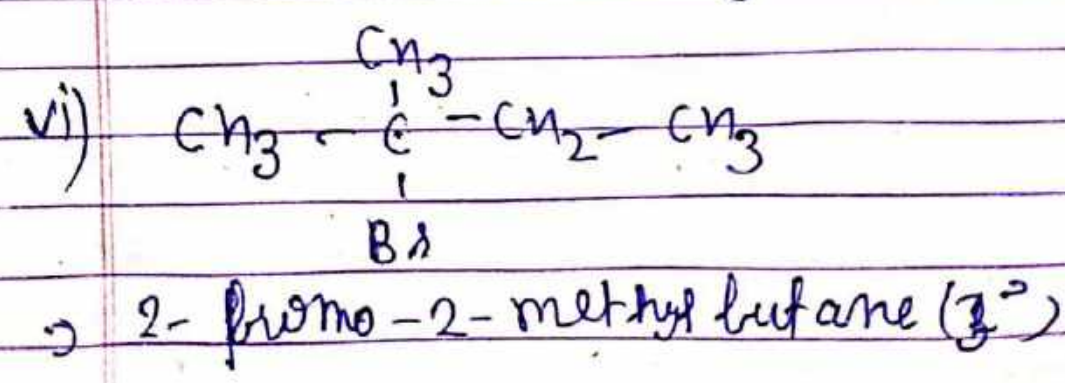 CH3
vi) CH3 - C - CH2 - CH3
Br
⇒ 2- bromo - 2 - methyl butane (3°)